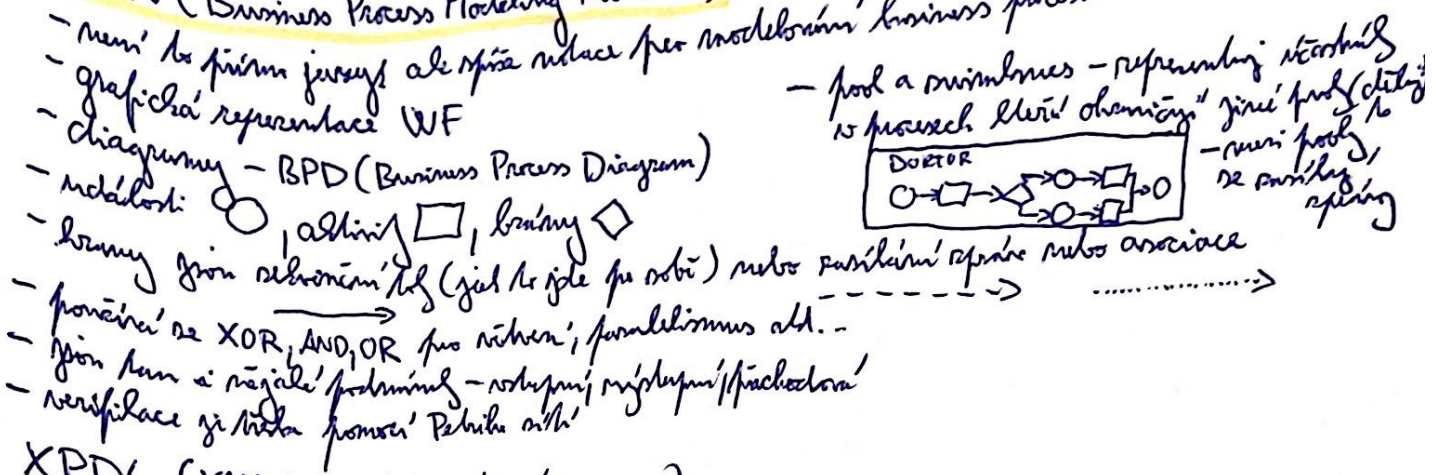 (Business Process Modeling
- není to přímo jazyk ale spíše notace pro modelování business
- grafická reprezentace WF
- diagramy - BPD (Business Process Diagram)
- události , aktivity , brány
- hrany jsou sekvenční toky (jak to jde po sobě) nebo zasílání zpráv nebo asociace
- používá se XOR, AND, OR pro větvení, paralelismus atd..
- jsou tam i nějaké podmínky - vstupní, výstupní, přechodová
- verifikace je třeba pomocí Petriho sítí
- pool a swimlanes - reprezentují účastníky
v procesech kteří jiné pooly
DOKTOR
- mezi pooly
se zasílají
zprávy